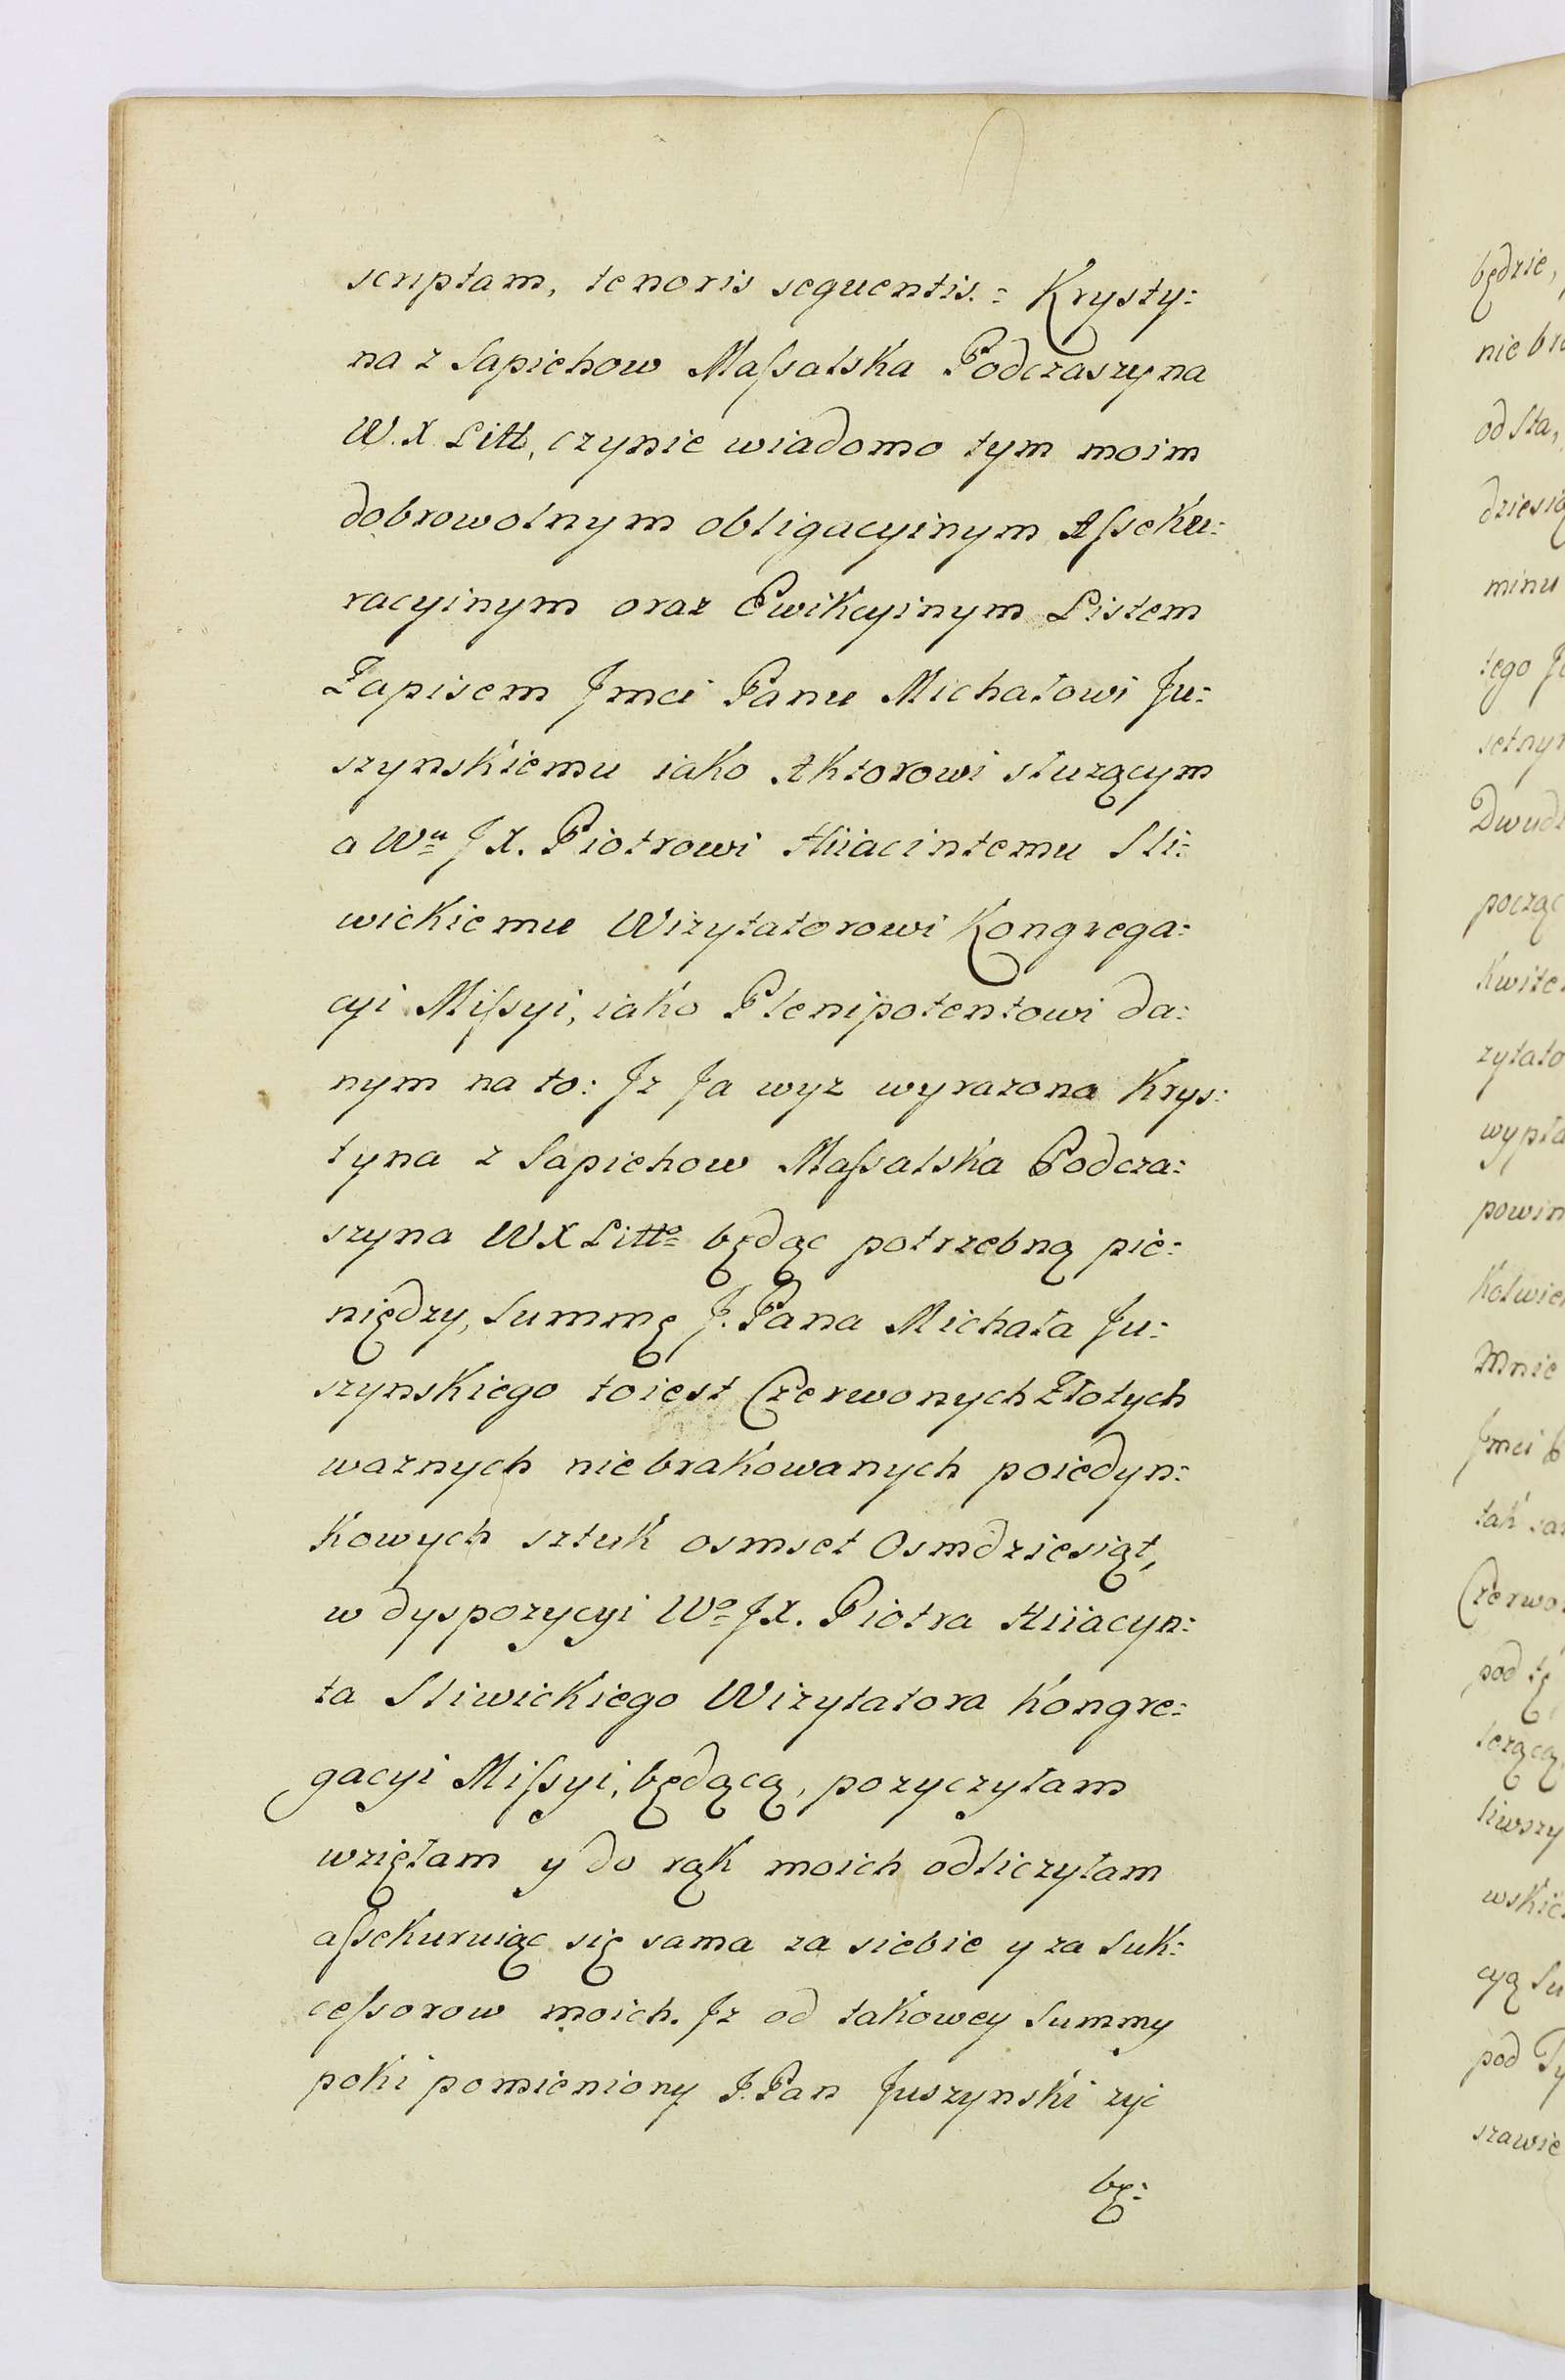 scriptam, tenoris sequentis.= Krysty:
na z Sapiehow Massalska Podczaszyna
W.X Litt, czynie wiadomo tym moim
dobrowolnym obligacyinym Asseku:
racyinym oraz Ewikcyinym Listem
Zapisem Jmci Panu Michałowi Ju:
szynskiemu iako Aktorowi służącym
a Wu JX. Piotrowi Hiiacintemu Sli:
wickiemu Wizytatorowi Kongrega:
cyi Missyi, iako Plenipotentowi da:
nym na to: Jz Ja wyz wyrazona Krys:
tyna z Sapiehow Massalska Podcza:
szyna WX Litto będąc potrzebną pie:
niędzy, Summę J. Pana Michała Ju:
szynskiego toiest Czerwonych Złotych
waznych niebrakowanych poiedyn:
kowych sztuk osmset Osmdziesiąt,
w dyspozycyi Wo JX. Piotra Hiiacyn:
ta Sliwickiego Wizytatora Kongre:
gacyi Missyi, będącą, pozyczyłam
wzięłam y do rąk moich odliczyłam
assekuruiąc się sama za siebie y za Suk:
cessorow moich. Jz od takowey Summy
poki pomieniony J. Pan Juszynski zyć
bę:
będzie,
nie br
od Sta,
dziesią
minu
tego J
setny
Dwudz
począ
Kwite
zytato
wypła
powin
Kolwie
Mnie
Jmci
tak sa
Czerwo
pod tę
lezącą
liwszy
wskie
cyą Su
pod Ty
szawie